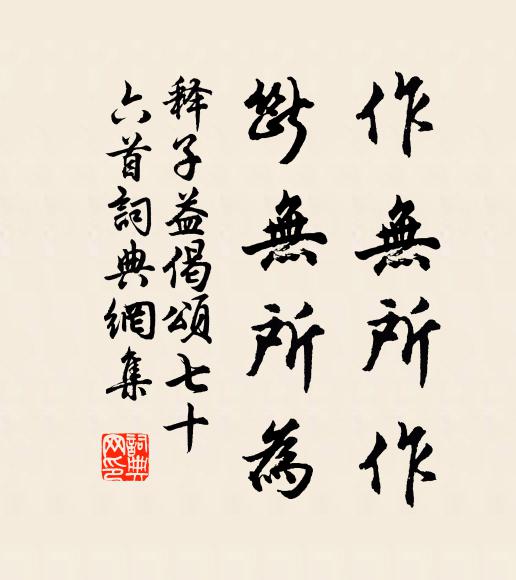 作無所作
斷無所為
释子益偈頌七十
六首詞典網集
詞典网印